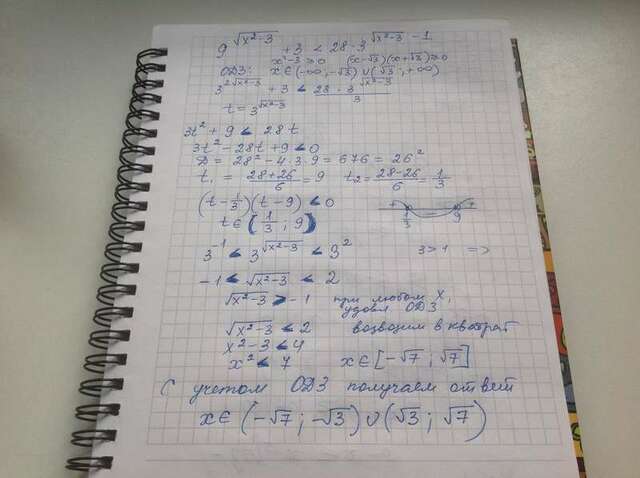 9^{√(x²-3)} + 3 < 28·3^{√(x²-3) - 1}
x²-3 ≥ 0 (x-√3)(x+√3) ≥ 0
ОДЗ: x ∈ (-∞; -√3) ∪ (√3; +∞)
3^{2√(x²-3)} + 3 < 28·3^{√(x²-3)}/3
t = 3^{√(x²-3)}
3t² + 9 < 28t
3t² - 28t + 9 < 0
D = 28² - 4·3·9 = 676 = 26²
t₁ = (28+26)/6 = 9 t₂ = (28-26)/6 = 1/3
(t - 1/3)(t - 9) < 0
+ - +
1/3 9
t ∈ (1/3; 9)
3^{-1} < 3^{√(x²-3)} < 3² 3 > 1 =>
-1 < √(x²-3) < 2
√(x²-3) > -1 при любом x,
удовл ОДЗ
√(x²-3) < 2 возводим в квадрат
x² - 3 < 4
x² < 7 x ∈ [-√7; √7]
С учетом ОДЗ получаем ответ
x ∈ (-√7; -√3) ∪ (√3; √7)